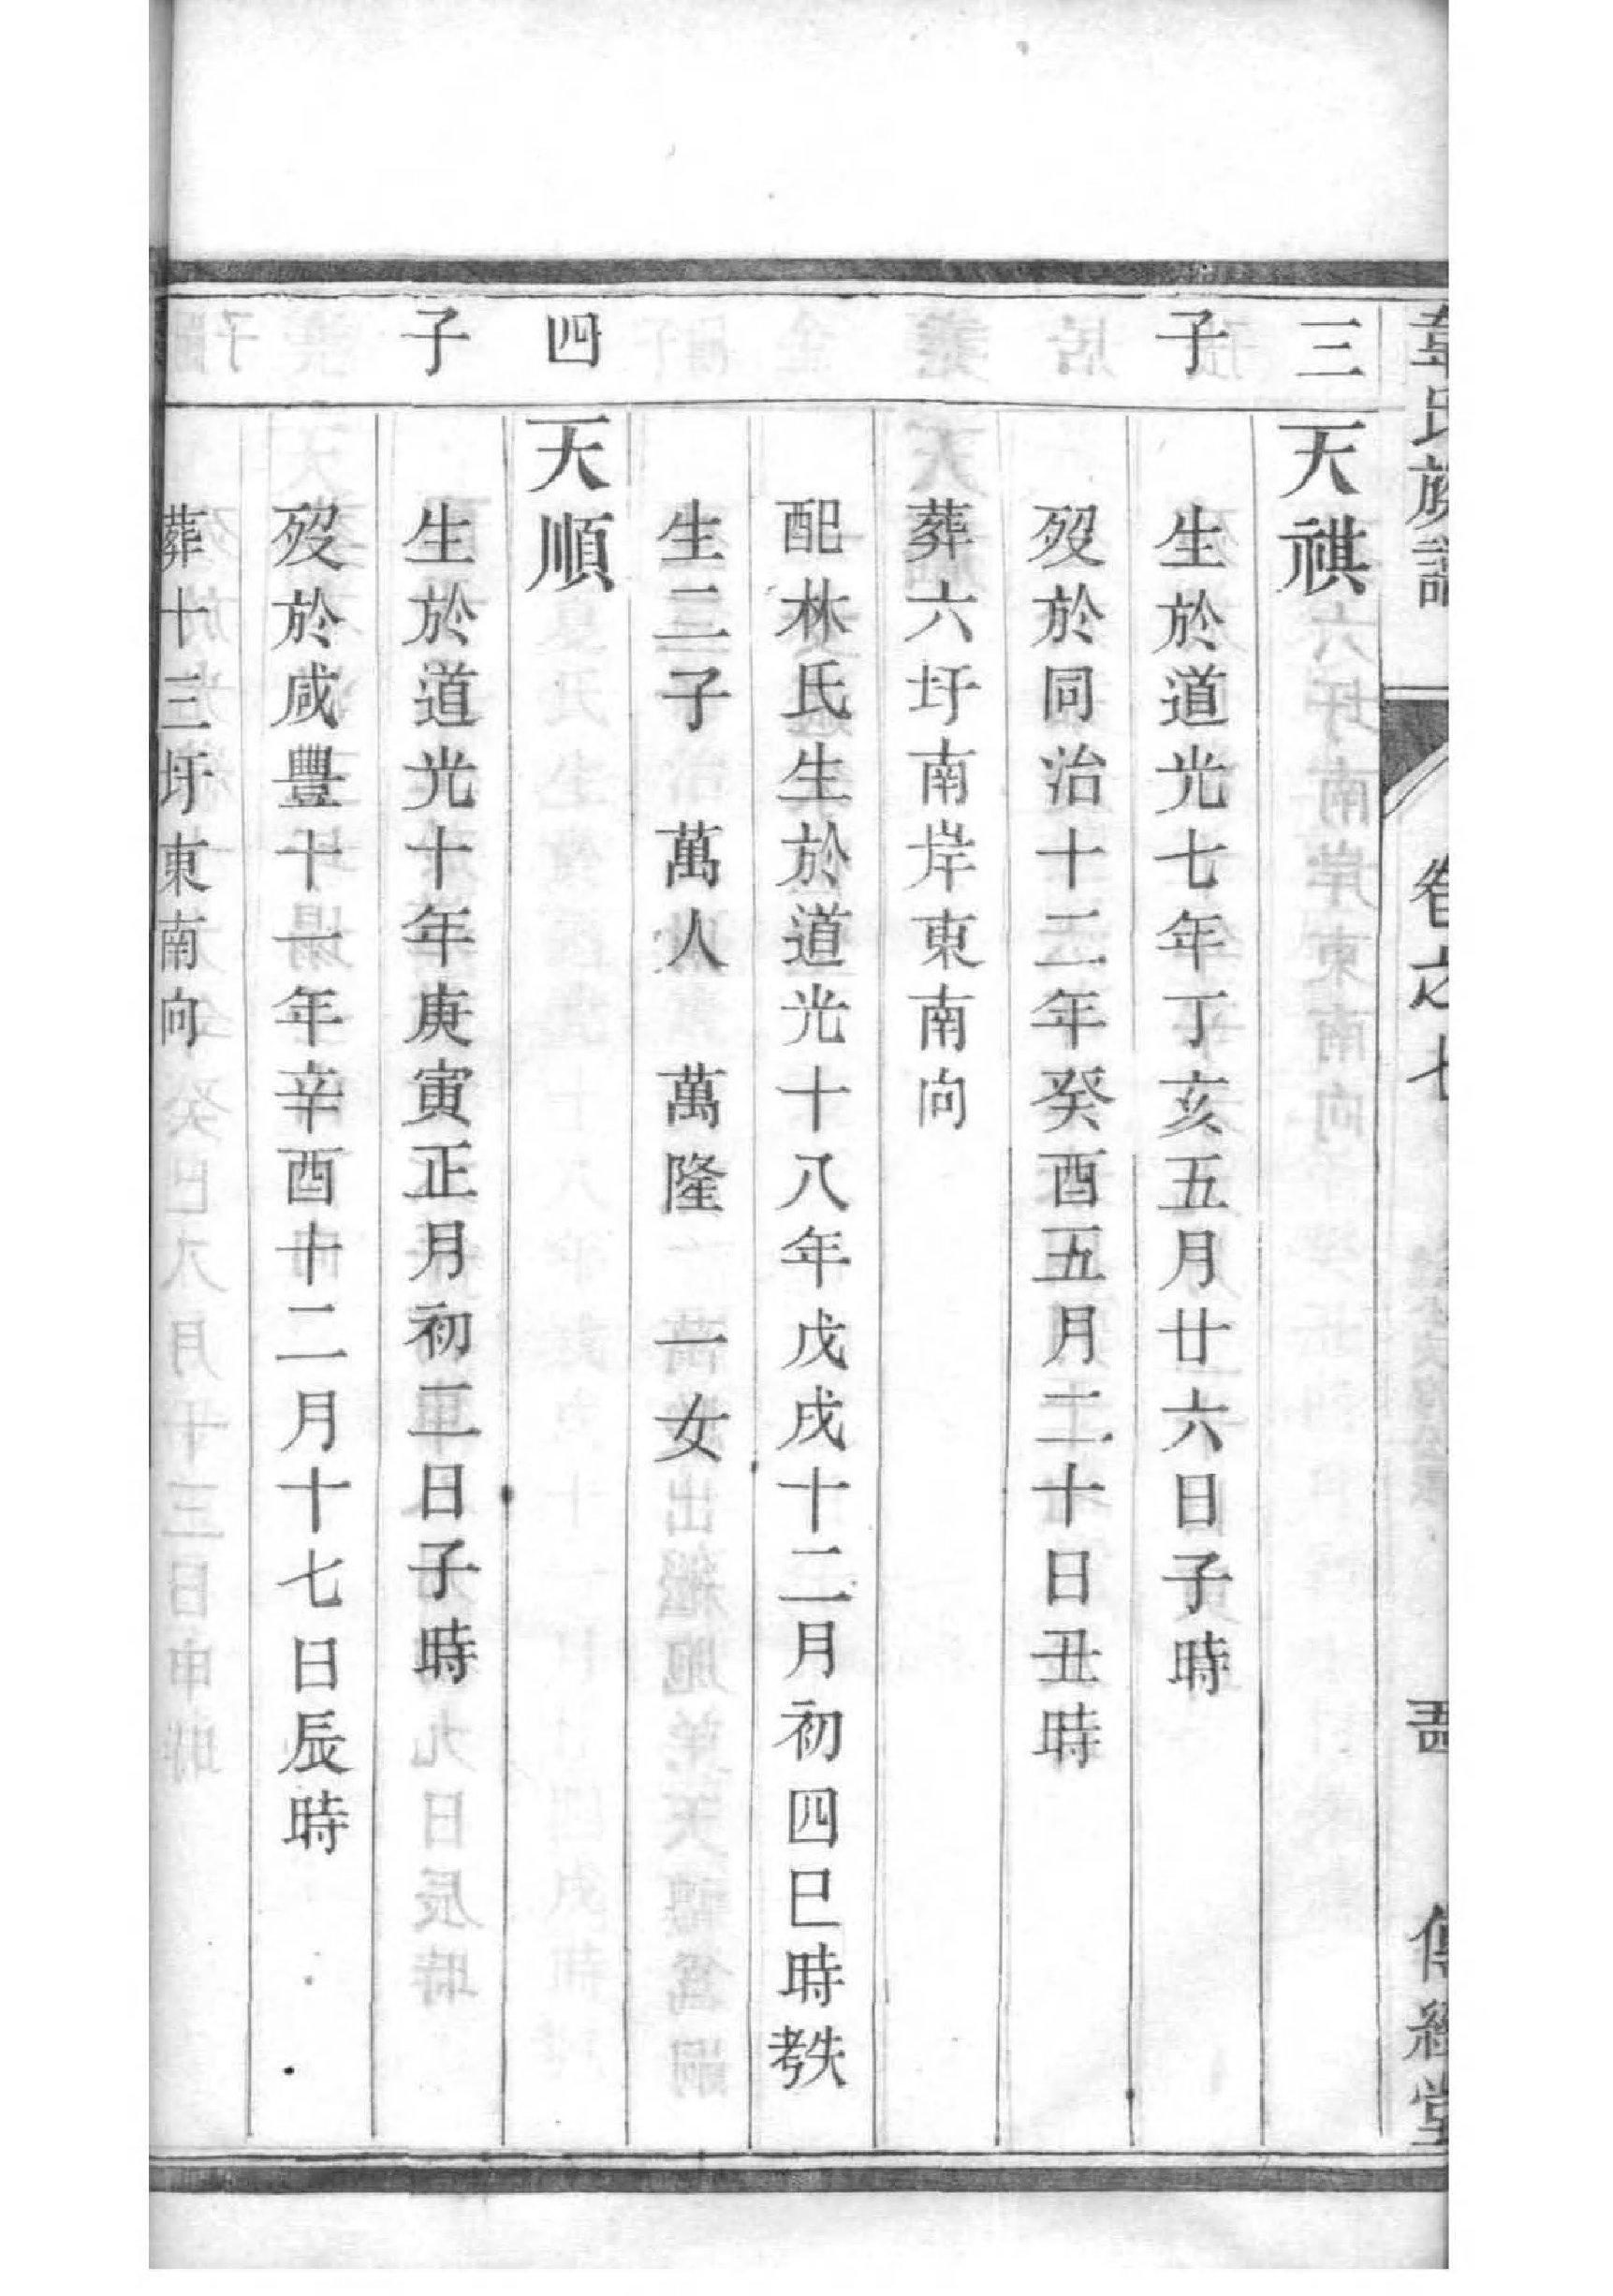 韋氏族譜 卷之七 傳經堂
三 天祺
子 生於道光七年丁亥五月廿六日子時
歿於同治十二年癸酉五月二十日丑時
葬六圩南岸東南向
配林氏生於道光十八年戊戌十二月初四巳時失考
生二子 萬人 萬隆 一女
四 天順
子 生於道光十年庚寅正月初二日子時
歿於咸豐十一年辛酉十二月十七日辰時
葬十三圩東南向